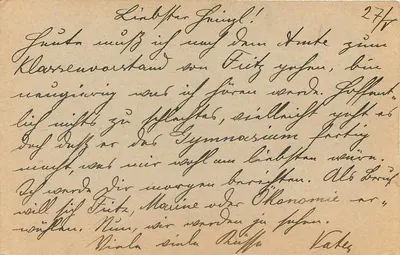 Liebster Heinzl! 27/V
Heute muß ich nach dem Amte zum
Klassenvorstand von Fritz gehen, bin
neugierig was ich hören werde. Hoffent-
lich nichts zu schlechtes, vielleicht geht es
doch daß er das Gymnasium fertig
macht, was mir wohl am liebsten wäre.
Ich werde Dir morgen berichten. Als Beruf
will sich Fritz, Marine oder Ökonomie er-
wählen. Nun, wir werden ja sehen.
Viele viele Küsse Vater